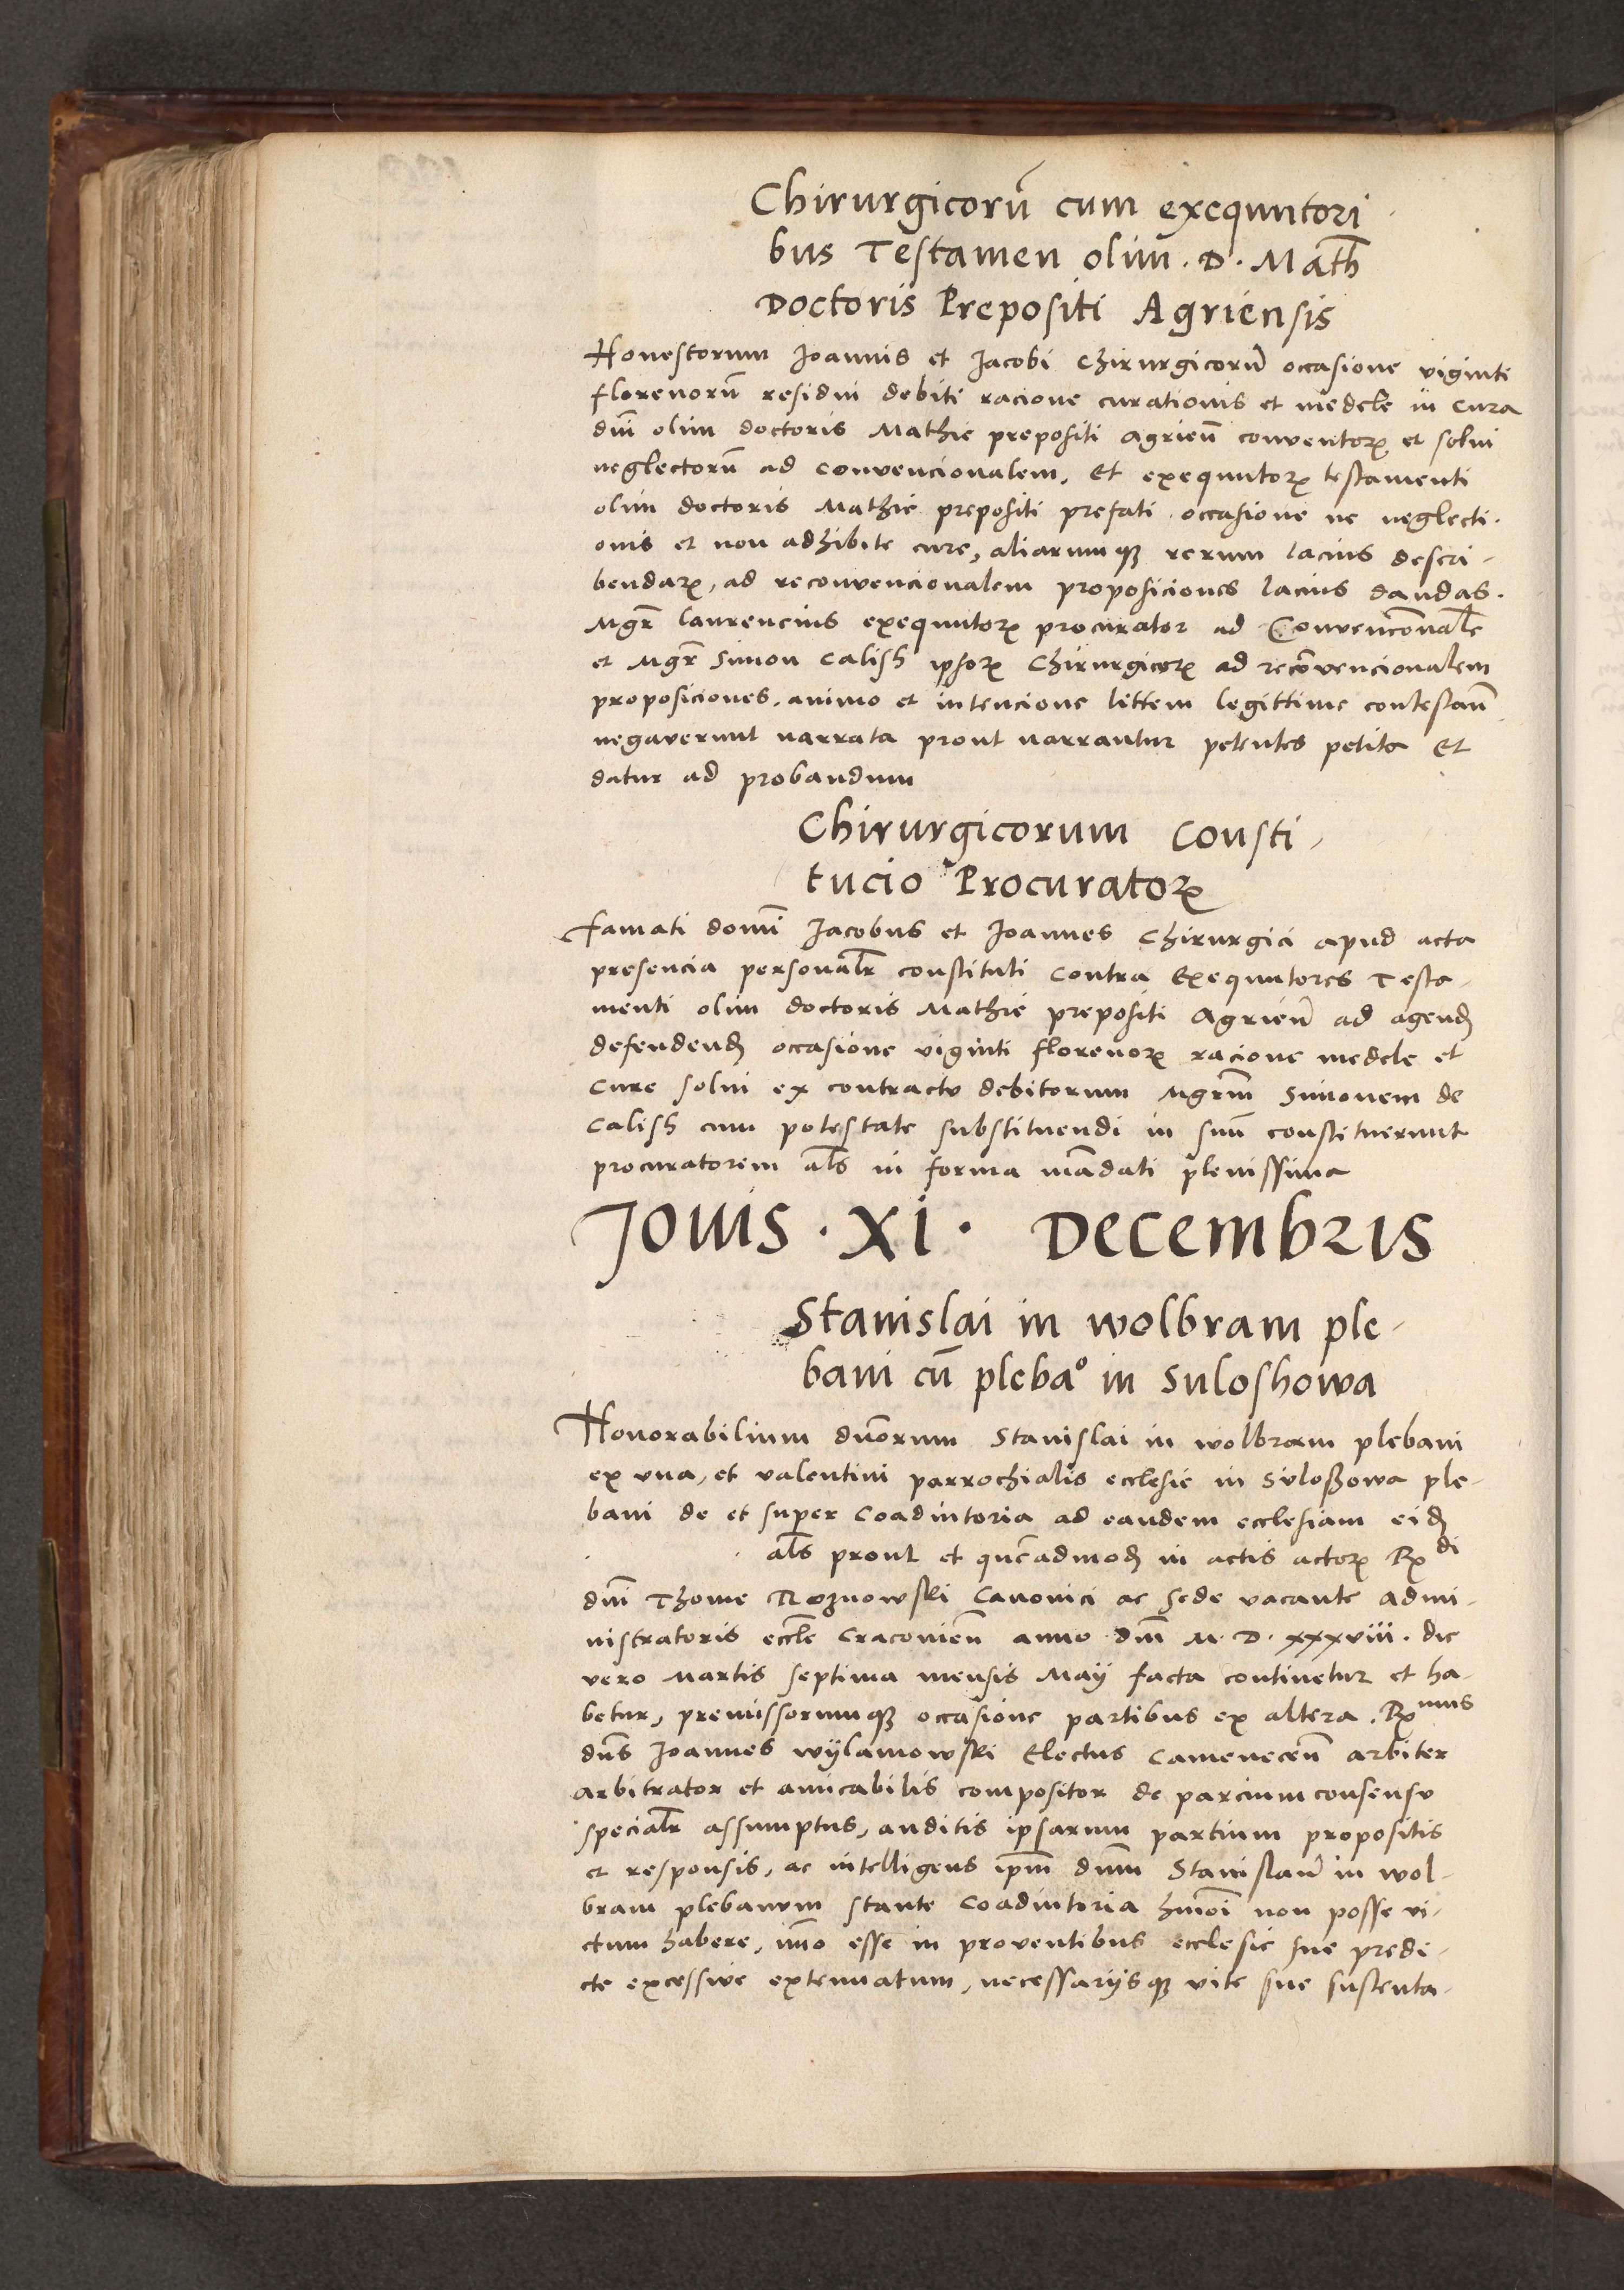 Chirurgicorū cum exequutori
bus Testamen olim · D · Math
Doctoris Prepositi Agriensis
Honestorum Joannis et Jacobi Chirurgicorū occasione viginti
florenorū residui debiti racione curationis et medele in cura
dn̄i olim doctoris Mathie prepositi Agrien̄ conventoꝝ et solui
neglectorū ad convencionalem, Et exequutoꝝ testamenti
olim doctoris Mathie prepositi prefati occasione ne neglecti-
onis et non adhibite cure, aliarumqꝫ rerum lacius descri-
bendaꝝ, ad reconvencionalem proposiciones lacius dandas.
Mgr̄ laurencius exequutoꝝ procurator ad Convenc̄onal̄e
et Mgr̄ Simon Calish ip̄soꝝ Chirurgicoꝝ ad recōvencionalem
proposiciones, animo et intencione littem legittime contestan̄
negaverunt narrata prout narrantur petentes petita Et
datur ad probandum
Chirurgicorum Consti-
tucio Procuratoꝝ
Famati domī Jacobus et Joannes Chirurgici apud acta
presencia personalr̄ constituti contra Exequutores Testa-
menti olim doctoris Mathie prepositi Agrien̄ ad agenđ
defendenđ occasione viginti florenoꝝ racione medele et
Cure solui ex contractu debitorum Mgrm̄ Simonem de
Calish cum potestate substituendi in suū constituerunt
procuratorem al̄s in forma mādati plenissima
Jouis · XI · Decembris
Stanislai in wolbram ple-
bani cū plebaº in Suloshowa
Honorabilium dn̄orum Stanislai in wolbram plebani
ex vna, et valentini parrochialis ecclesie in Suloßowa ple-
bani de et super Coadiutoria ad eandem ecclesiam eiđ
al̄s prout et quēadmođ in actis actoꝝ Rx di
dn̄i Thome Roznowski Canonici ac Sede vacante Admi-
nistratoris eccl̄e Craconien̄ anno dn̄i M · D · xxxviii · die
vero Martis septima mensis Maÿ facta continetur et ha-
betur, premissorumqꝫ occasione partibus ex altera. Rx mus
dn̄s Joannes wÿlamowski Electus Camenecen̄ arbiter
Arbitrator et amicabilis compositor de parcium consensu
specialr̄ assumptus, auditis ipsarum partium propositis
et responsis, ac intelligens ip̄m dn̄m Stanislaū in wol-
bram plebanum stante Coadiutoria hmōi non posse vi-
ctum habere, ym̄o esse in proventibus ecclesie sue predi-
cte excessive extenuatum, necessarijsqꝫ vite sue sustenta-